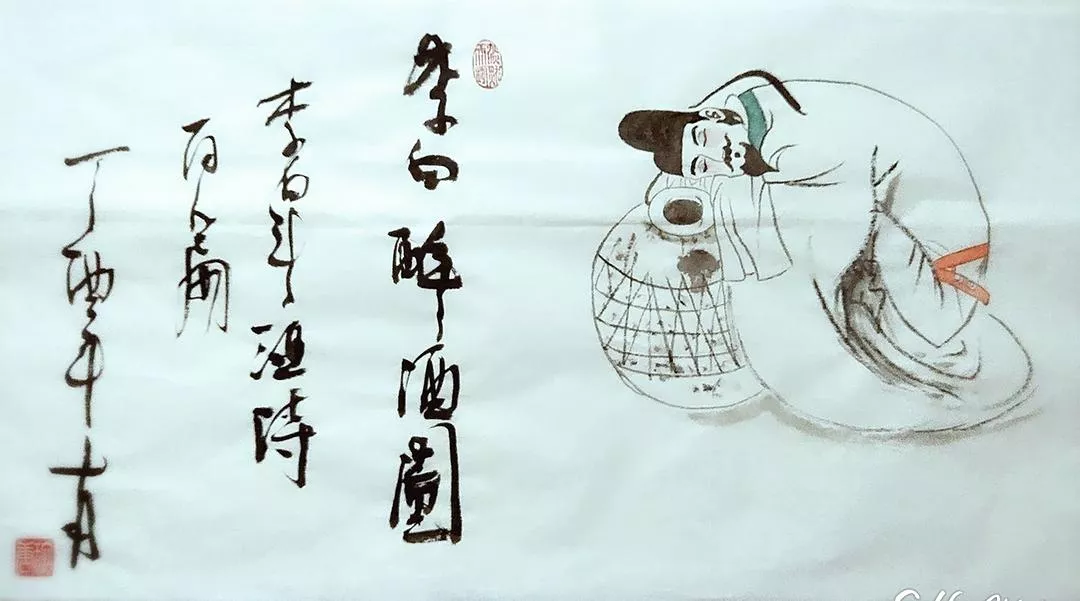 李白醉酒圖
李白斗酒诗
百篇
丁酉年十月